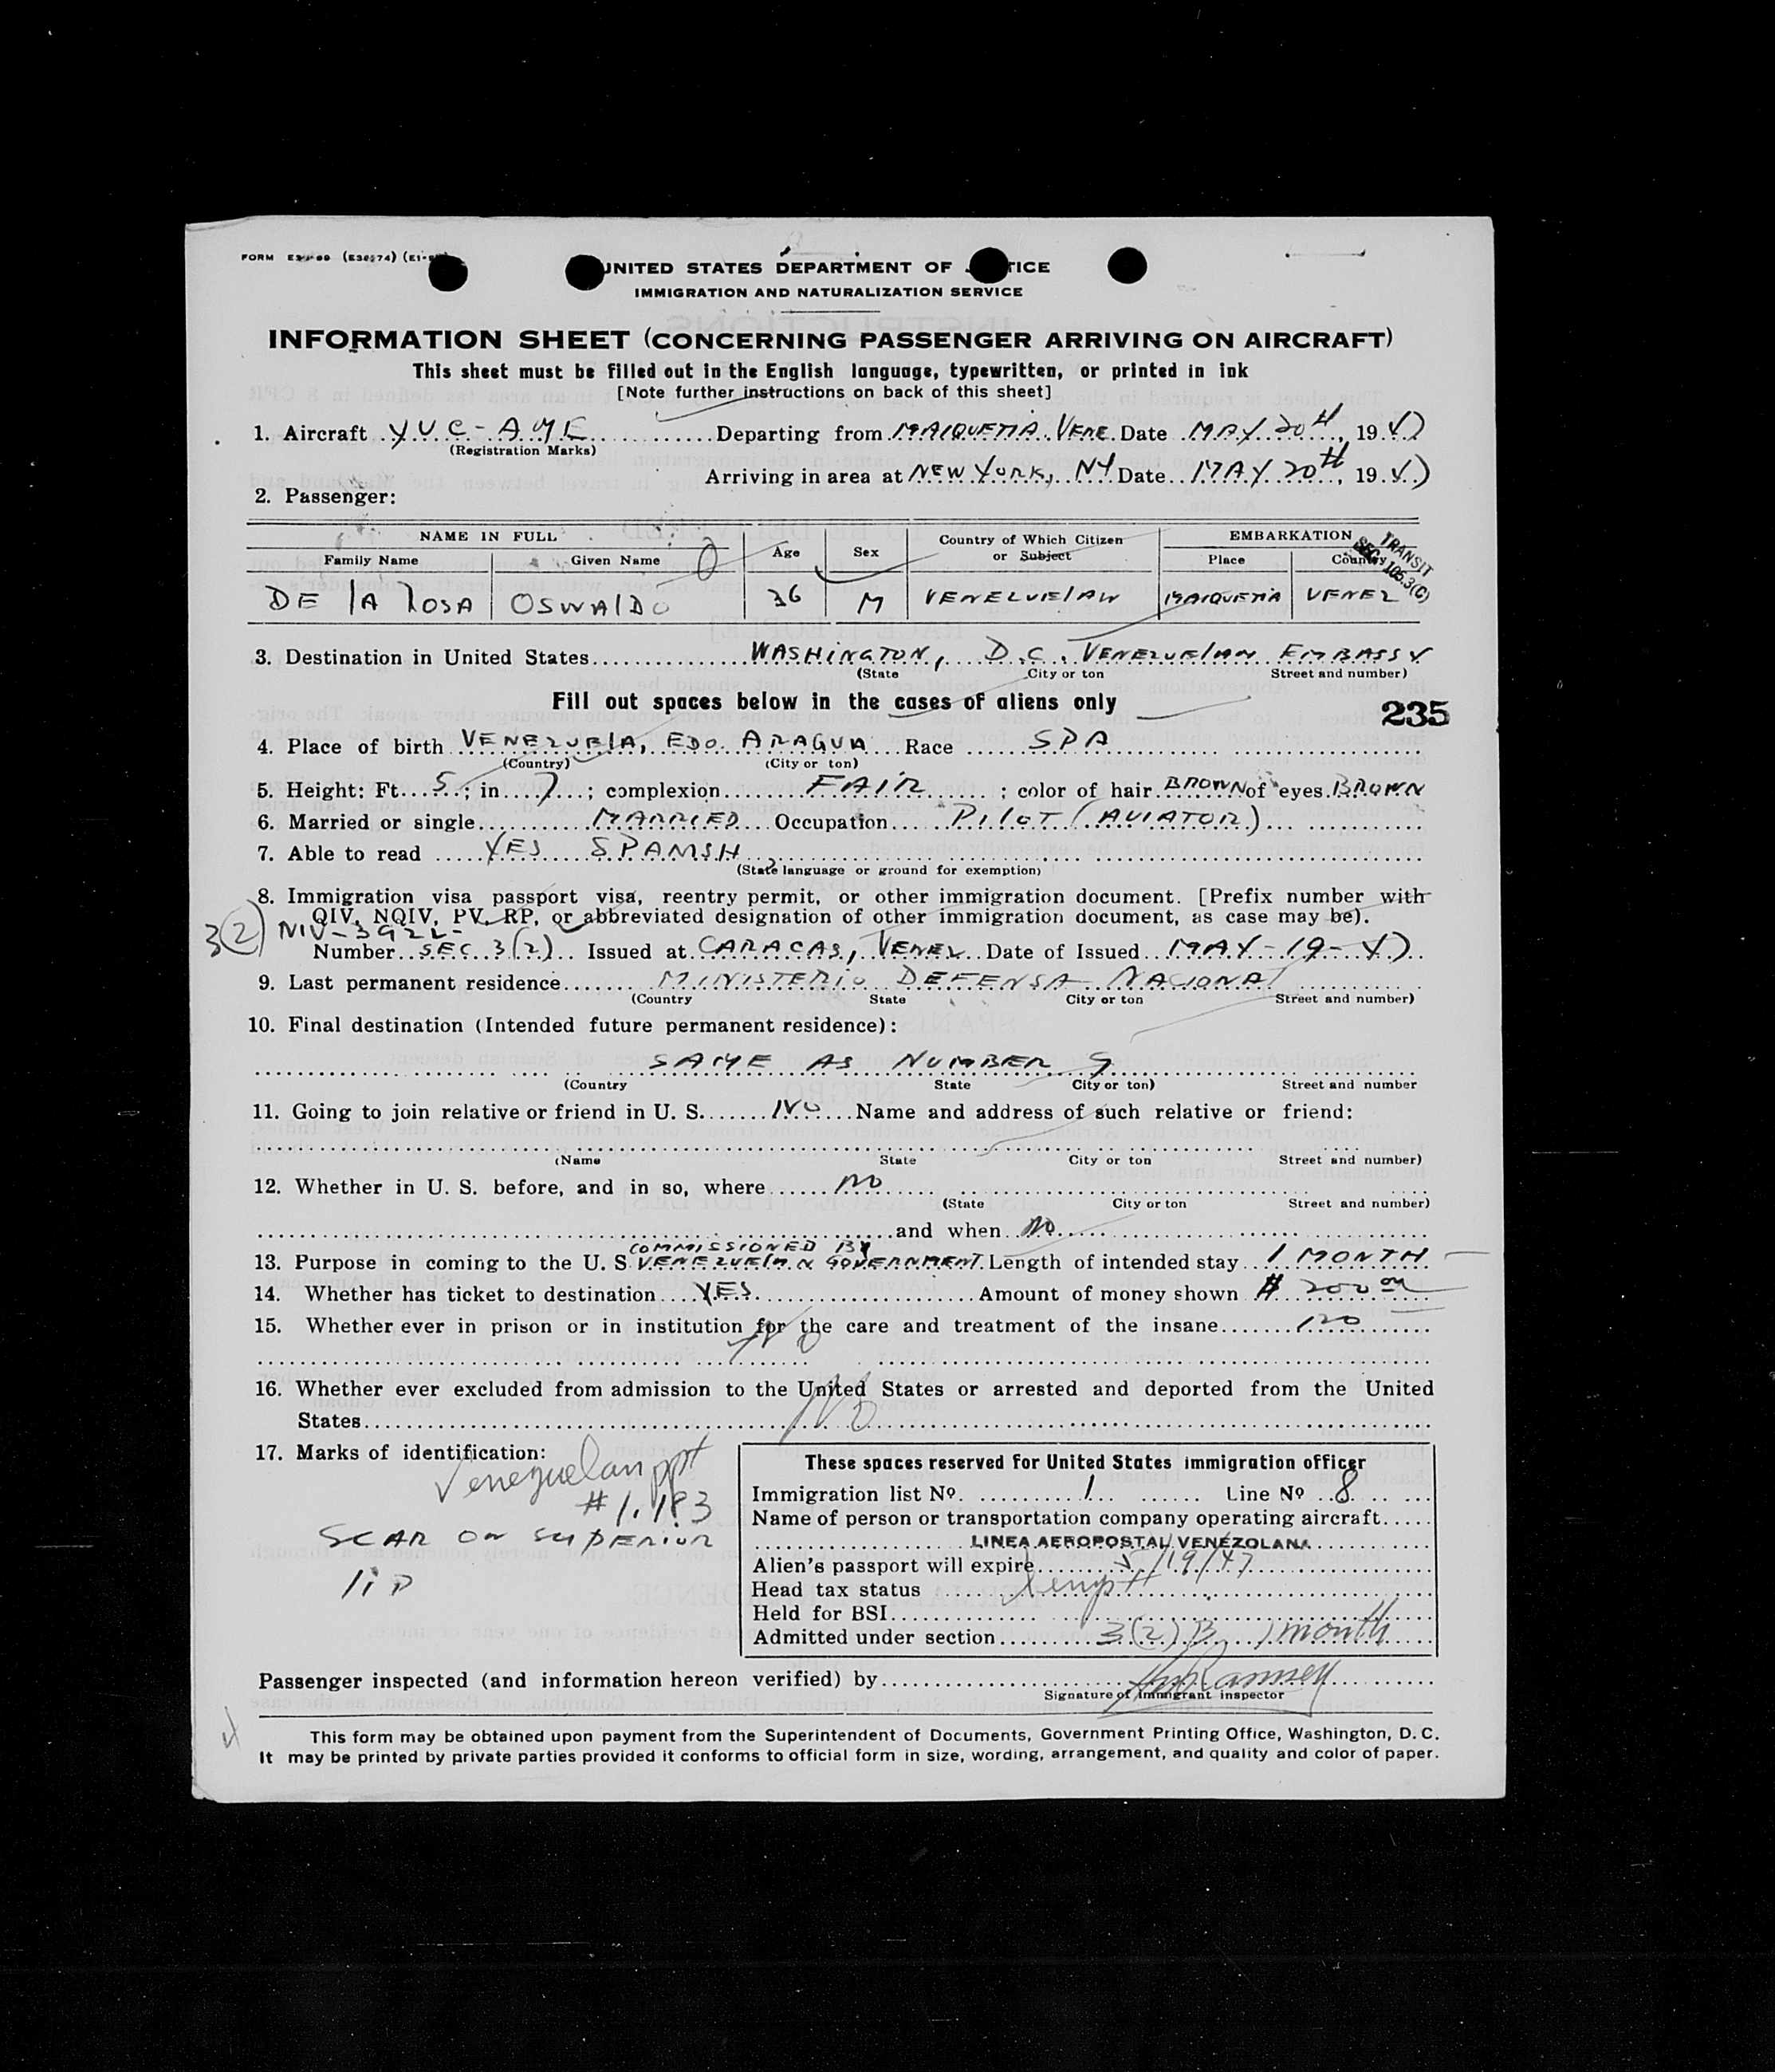 UNITED STATES DEPARTMENT OF
IMMIGRATION AND NATURALIZATION SERVICE
INFORMATION SHEET (CONCERNING PASSENGER ARRIVING ON AIRCRAFT)
This sheet must be filled out in the English language, typewritten, or printed in ink
[Note further instructions on back of this sheet]
1. Aircraft YVC-AME Departing from MAIQUETIA. VENE. Date MAY 20th, 1947
(Registration Marks)
Arriving in area at NEW YORK, NY Date MAY 20th, 1947
2. Passenger:
NAME IN FULL Age Sex Country of Which Citizen or Subject EMBARKATION
Family Name Given Name Place Country
TRANSIT
SEC. 105.3(C)
DE LA ROSA OSWALDO 36 M VENEZUELAN MAIQUETIA VENEZ
3. Destination in United States WASHINGTON, D.C. VENEZUELAN EMBASSY
(State City or ton Street and number)
Fill out spaces below in the cases of aliens only
235
4. Place of birth VENEZUELA, EDO. ARAGUA Race SPA
(Country) (City or ton)
5. Height: Ft. 5; in 7; complexion FAIR; color of hair BROWN of eyes BROWN
6. Married or single MARRIED Occupation PILOT (AVIATOR)
7. Able to read YES SPANISH
(State language or ground for exemption)
8. Immigration visa passport visa, reentry permit, or other immigration document. [Prefix number with
QIV, NQIV, PV. RP, or abbreviated designation of other immigration document, as case may be).
3(2) NIV-3922-
Number SEC 3(2) Issued at CARACAS, VENEZ Date of Issued MAY-19-47
9. Last permanent residence MINISTERIO DEFENSA NACIONAL
(Country State City or ton Street and number)
10. Final destination (Intended future permanent residence):
SAME AS NUMBER 9
(Country State City or ton) Street and number
11. Going to join relative or friend in U. S. NO Name and address of such relative or friend:
(Name State City or ton Street and number)
12. Whether in U. S. before, and in so, where NO
(State City or ton Street and number)
and when NO
COMMISSIONED BY
13. Purpose in coming to the U. S VENEZUELAN GOVERNMENT. Length of intended stay 1 MONTH
14. Whether has ticket to destination YES Amount of money shown $ 200 00
15. Whether ever in prison or in institution for the care and treatment of the insane NO
No
16. Whether ever excluded from admission to the United States or arrested and deported from the United
States No
17. Marks of identification:
Venezuelan ppt
# 1,183
SCAR ON SUPERIOR
LIP
These spaces reserved for United States immigration officer
Immigration list No. 1 Line No 8
Name of person or transportation company operating aircraft
LINEA AEROPOSTAL VENEZOLANA
Alien's passport will expire 5/19/47
Head tax status
Held for BSI
Admitted under section 3(2) B 1 month
Passenger inspected (and information hereon verified) by
Signature of Immigrant inspector
This form may be obtained upon payment from the Superintendent of Documents, Government Printing Office, Washington, D. C.
It may be printed by private parties provided it conforms to official form in size, wording, arrangement, and quality and color of paper.